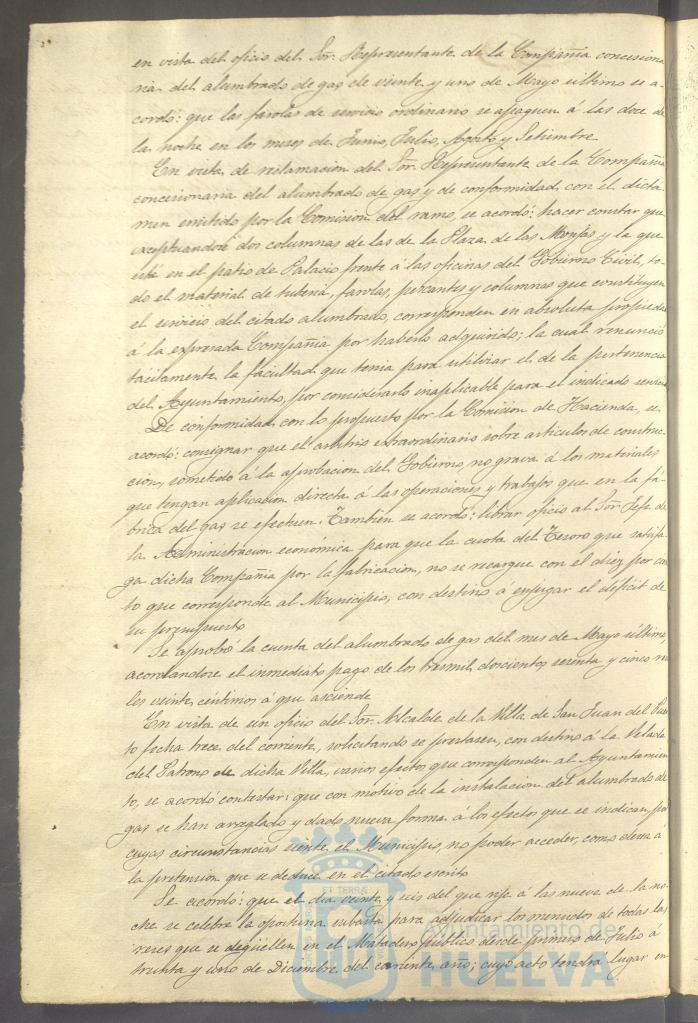 en vista del oficio del Sor. Representante de la Compañia concesiona
ria del alumbrado de gas de veinte y uno de Mayo último se a-
cordó: que las farolas de servicio ordinario se apaguen á las doce de
la noche en los meses de Junio, Julio, Agosto y Setiembre
En vista de reclamacion del Sor. Representante de la Compañia
concesionaria del alumbrado de gas y de conformidad con el dictá
men emitido por la Comision del ramo, se acordó: hacer constar que
exceptuandose dos columnas de las de la Plaza de las Monjas y la que
está en el patio de Palacio frente á las oficinas del Gobierno Civil, to-
do el material de tubería, farolas, pescantes y columnas que constituyen
el servicio del citado alumbrado, corresponden en absoluta propiedad
á la expresada Compañia por haberlo adquirido; la cual renunció
tacitamente la facultad que tenia para utilizar el de la pertenencia
del Ayuntamiento, por considerarlo inaplicable para el indicado servicio
De conformidad con lo propuesto por la Comision de Hacienda, se
acordó: consignar que el arbitrio extraordinario sobre articulos de construc-
cion, sometido á la aprobacion del Gobierno, no grava á los materiales
que tengan aplicacion directa á las operaciones y trabajos que en la fá-
brica del Gas se efectuen. Tambien se acordó: librar oficio al Sor. Jefe de
la Administracion económica para que la cuota del Tesoro que satisfa-
ga dicha Compañia por la fabricacion, no se recargue con el diez por cien
to que corresponde al Municipio, con destino á enjugar el déficit de
su presupuesto
Se aprobó la cuenta del alumbrado de gas del mes de Mayo último,
acordandose el inmediato pago de los tresmil doscientos sesenta y cinco rea
les veinte céntimos á que asciende
En vista de un oficio del Sor. Alcalde de la Villa de San Juan del Puer
to fecha trece del corriente, solicitando se prestasen, con destino á la Velada
del Patrono de dicha Villa, varios efectos que corresponden al Ayuntamien
to, se acordó contestar: que con motivo de la instalacion del alumbrado de
gas se han arreglado y dado nueva forma á los efectos que se indican, por
cuyas circunstancias siente el Municipio no poder acceder, como desea a
la pretension que se deduce en el citado escrito
Se acordó: que el dia veinte y seis del que rije á las nueve de la no-
che se celebre la oportuna subasta para adjudicar los menudos de todas las
reses que se degüellen en el Matadero público desde primero de Julio á
treinta y uno de Diciembre del corriente año; cuyo acto tendrá lugar en
ET TERRÆ
Ayuntamiento de
HUELVA